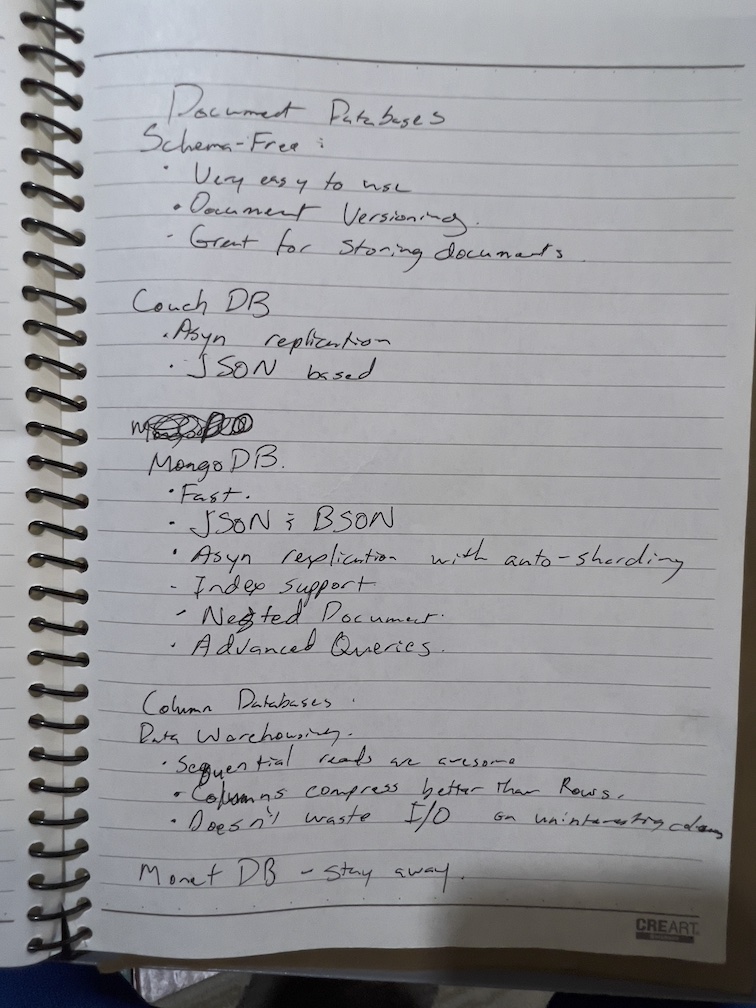 Document Databases
Schema-Free :
· Very easy to use
· Document Versioning.
- Great for storing documents.
Couch DB
· Asyn replication
· JSON based
MongoDB.
· Fast.
· JSON & BSON
· Asyn resplication with auto-sharding
- Index support
- Nested Document.
· Advanced Queries.
Column Databases.
Data Warehousing.
· Sequential reads are awesome
· Columns compress better than Rows.
· Doesn't waste I/O on uninteresting columns
Monet DB - stay away.
CREART